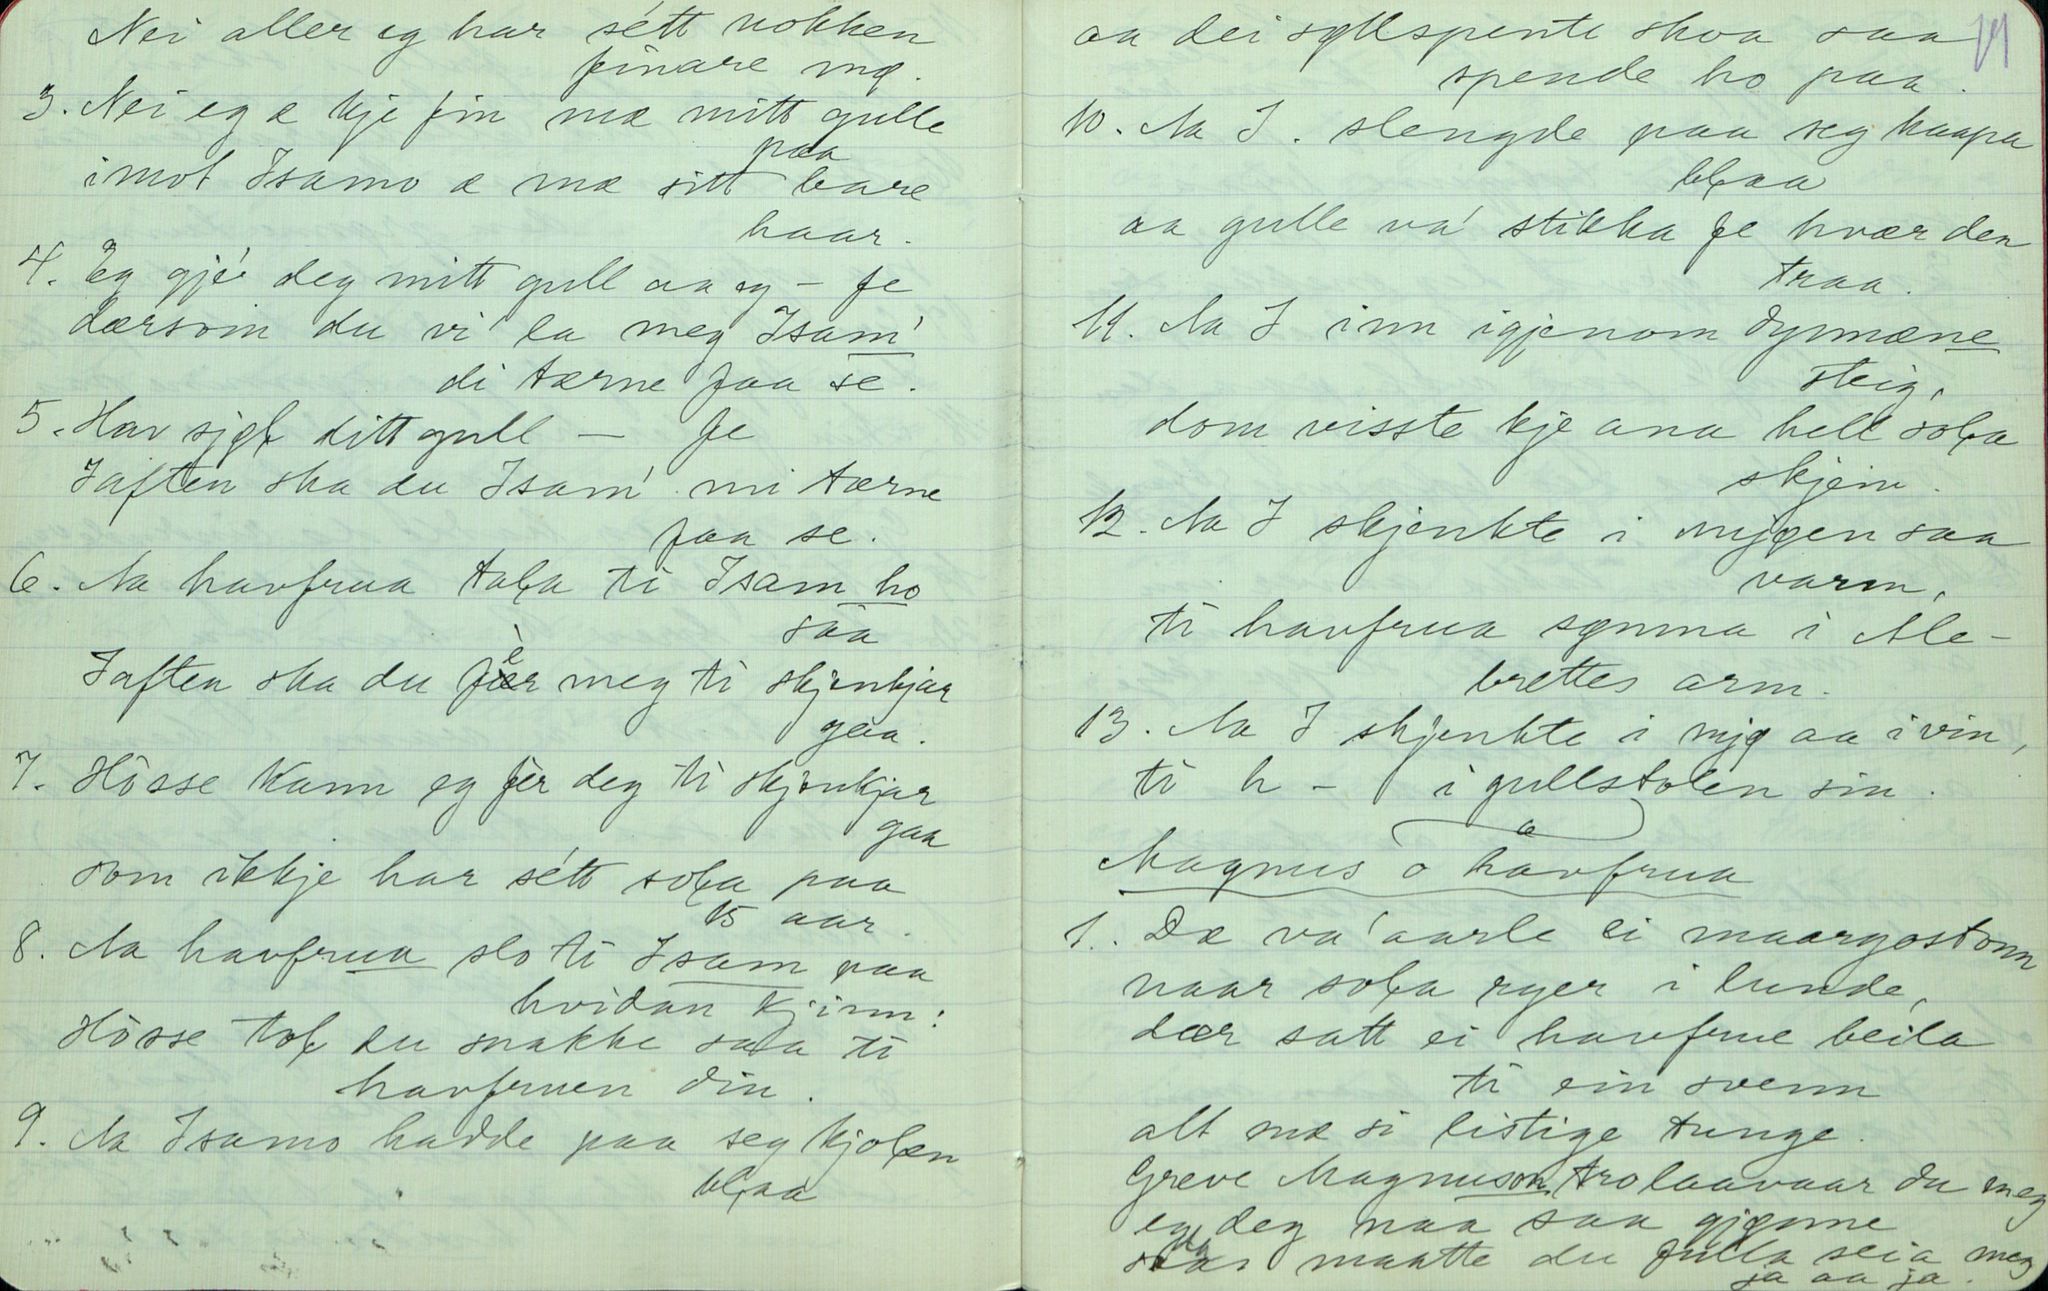 Nei aller eg har sétt nokken
finare mø.
3. Nei eg æ kje fin mæ mitt gulle
paa
imot Isamo æ mæ sitt bare
haar.
4. Eg gjé deg mitt gull aa eg – fe
dærsom du vi la meg Isam'
di tærne faa se.
5. Hav sjøł ditt gull — fe
Iaften ska du Isam' mi tærne
faa se.
6. Aa havfrua tała ti Isam ho
saa
Iaften ska du fèr meg ti skjenkjar
gaa.
7. Hòsse kann eg fèr deg ti skjenkjar
gaa
som ikkje har sétt soła paa
15 aar.
8. Aa havfrua slo ti Isam paa
hvidan kjinn:
Hòsse toł du snakke saa ti
havfruen din.
9. Aa Isamo hadde paa seg kjołen
błaa
aa dei søllspente skoa saa
spende ho paa.
10. Aa I. slengde paa seg kaapa
błaa
aa gulle va' stikka fe hvær den
traa.
11. Aa I inn igjenom dynnæne
steig,
dom visste kje ana hell soła
skjein.
12. Aa I skjenkte i mjøen saa
varm,
ti havfrua sømna i Ale-
brettes arm.
13. Aa I skjenkte i mjø aa i vin,
ti h – i gullstolen sin.
Magnus o havfrua
1. Dæ va' aarle ei maargostonn
naar soła ryer i lunde,
dær satt ei havfrue beila
ti ein svenn
alt mæ si listige tunge.
Greve Magnuson trolaavaar du meg
eg deg naa saa gjønne
maatte du fulla seia meg
ja aa ja.